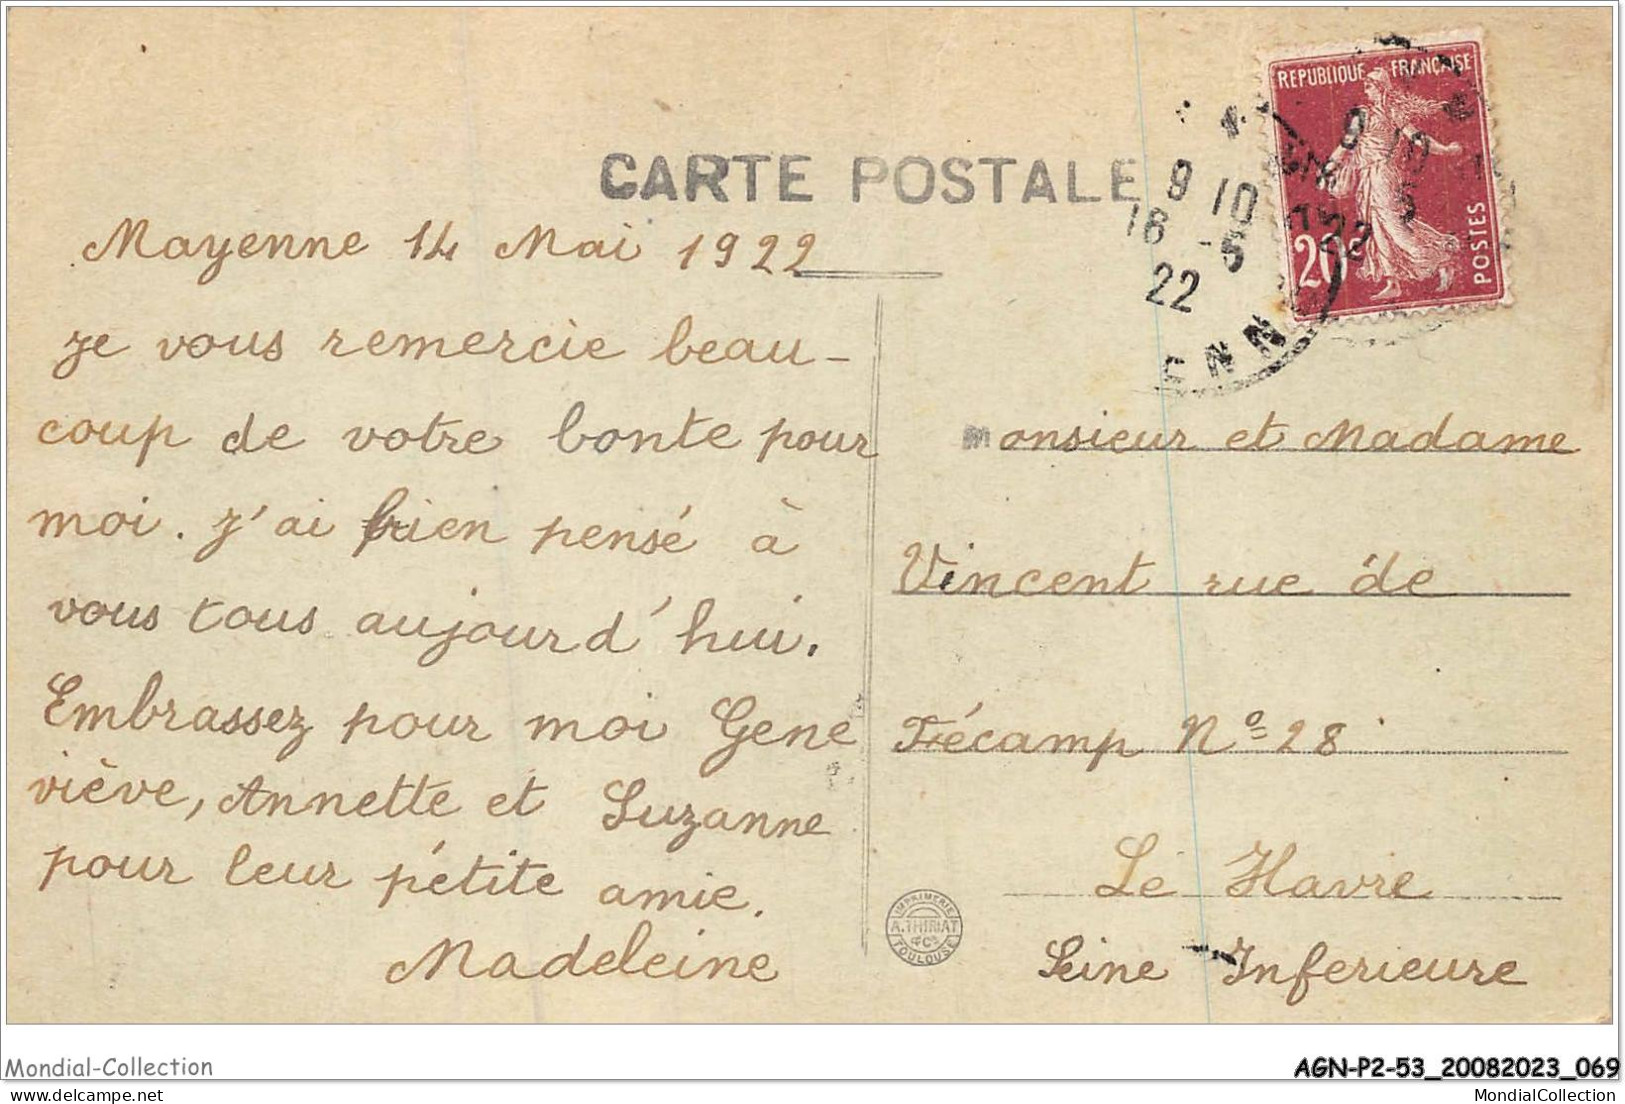 CARTE POSTALE
REPUBLIQUE FRANÇAISE
20c
POSTES
9 10
16 -5
22
9 10
5
22
ENN
Mayenne 14 Mai 1922
je vous remercie beau-
coup de votre bonte pour
moi. J'ai bien pensé à
vous tous aujourd'hui.
Embrassez pour moi Gene
viève, Annette et Suzanne
pour leur pétite amie.
Madeleine
Monsieur et Madame
Vincent rue de
Fécamp Nº 28
Le Havre
Seine Inferieure
IMPRIMERIE
A. THIRIAT
& Cie
TOULOUSE
Mondial-Collection
AGN-P2-53_20082023_069
mondial-collection
MondialCollection